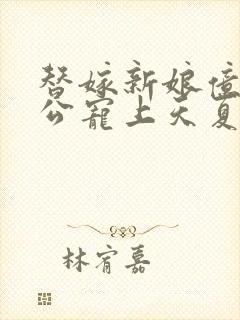 替嫁新娘亿
公宠上天夏
林宥嘉